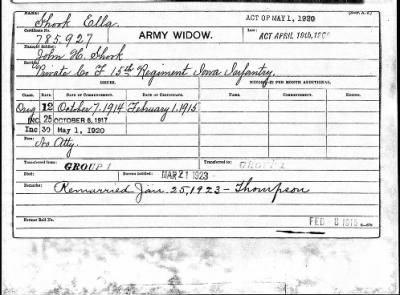 NAME: ACT OF MAY 1, 1920
Shook Ella.
Certificate No. Law:
785,927 ARMY WIDOW. ACT APRIL 19th, 1908
Name of Soldier:
John H. Shook
Service:
Private Co F 15th Regiment Iowa Infantry.
CLASS. RATE. DATE OF COMMENCEMENT. DATE OF CERTIFICATE. RATE. DATE OF COMMENCEMENT.
Orig 12 October 7, 1914 February 1, 1915
INC. 25 OCTOBER 6, 1917
Inc 30 May 1, 1920
No Atty.
Transferred from: Transferred to:
GROUP 1 GROUP 2
Died: Bureau notified:
MAR 21 1923
Remarks:
Remarried Jan. 25, 1923 - Thompson
Former Roll No.
FEB 8 1915